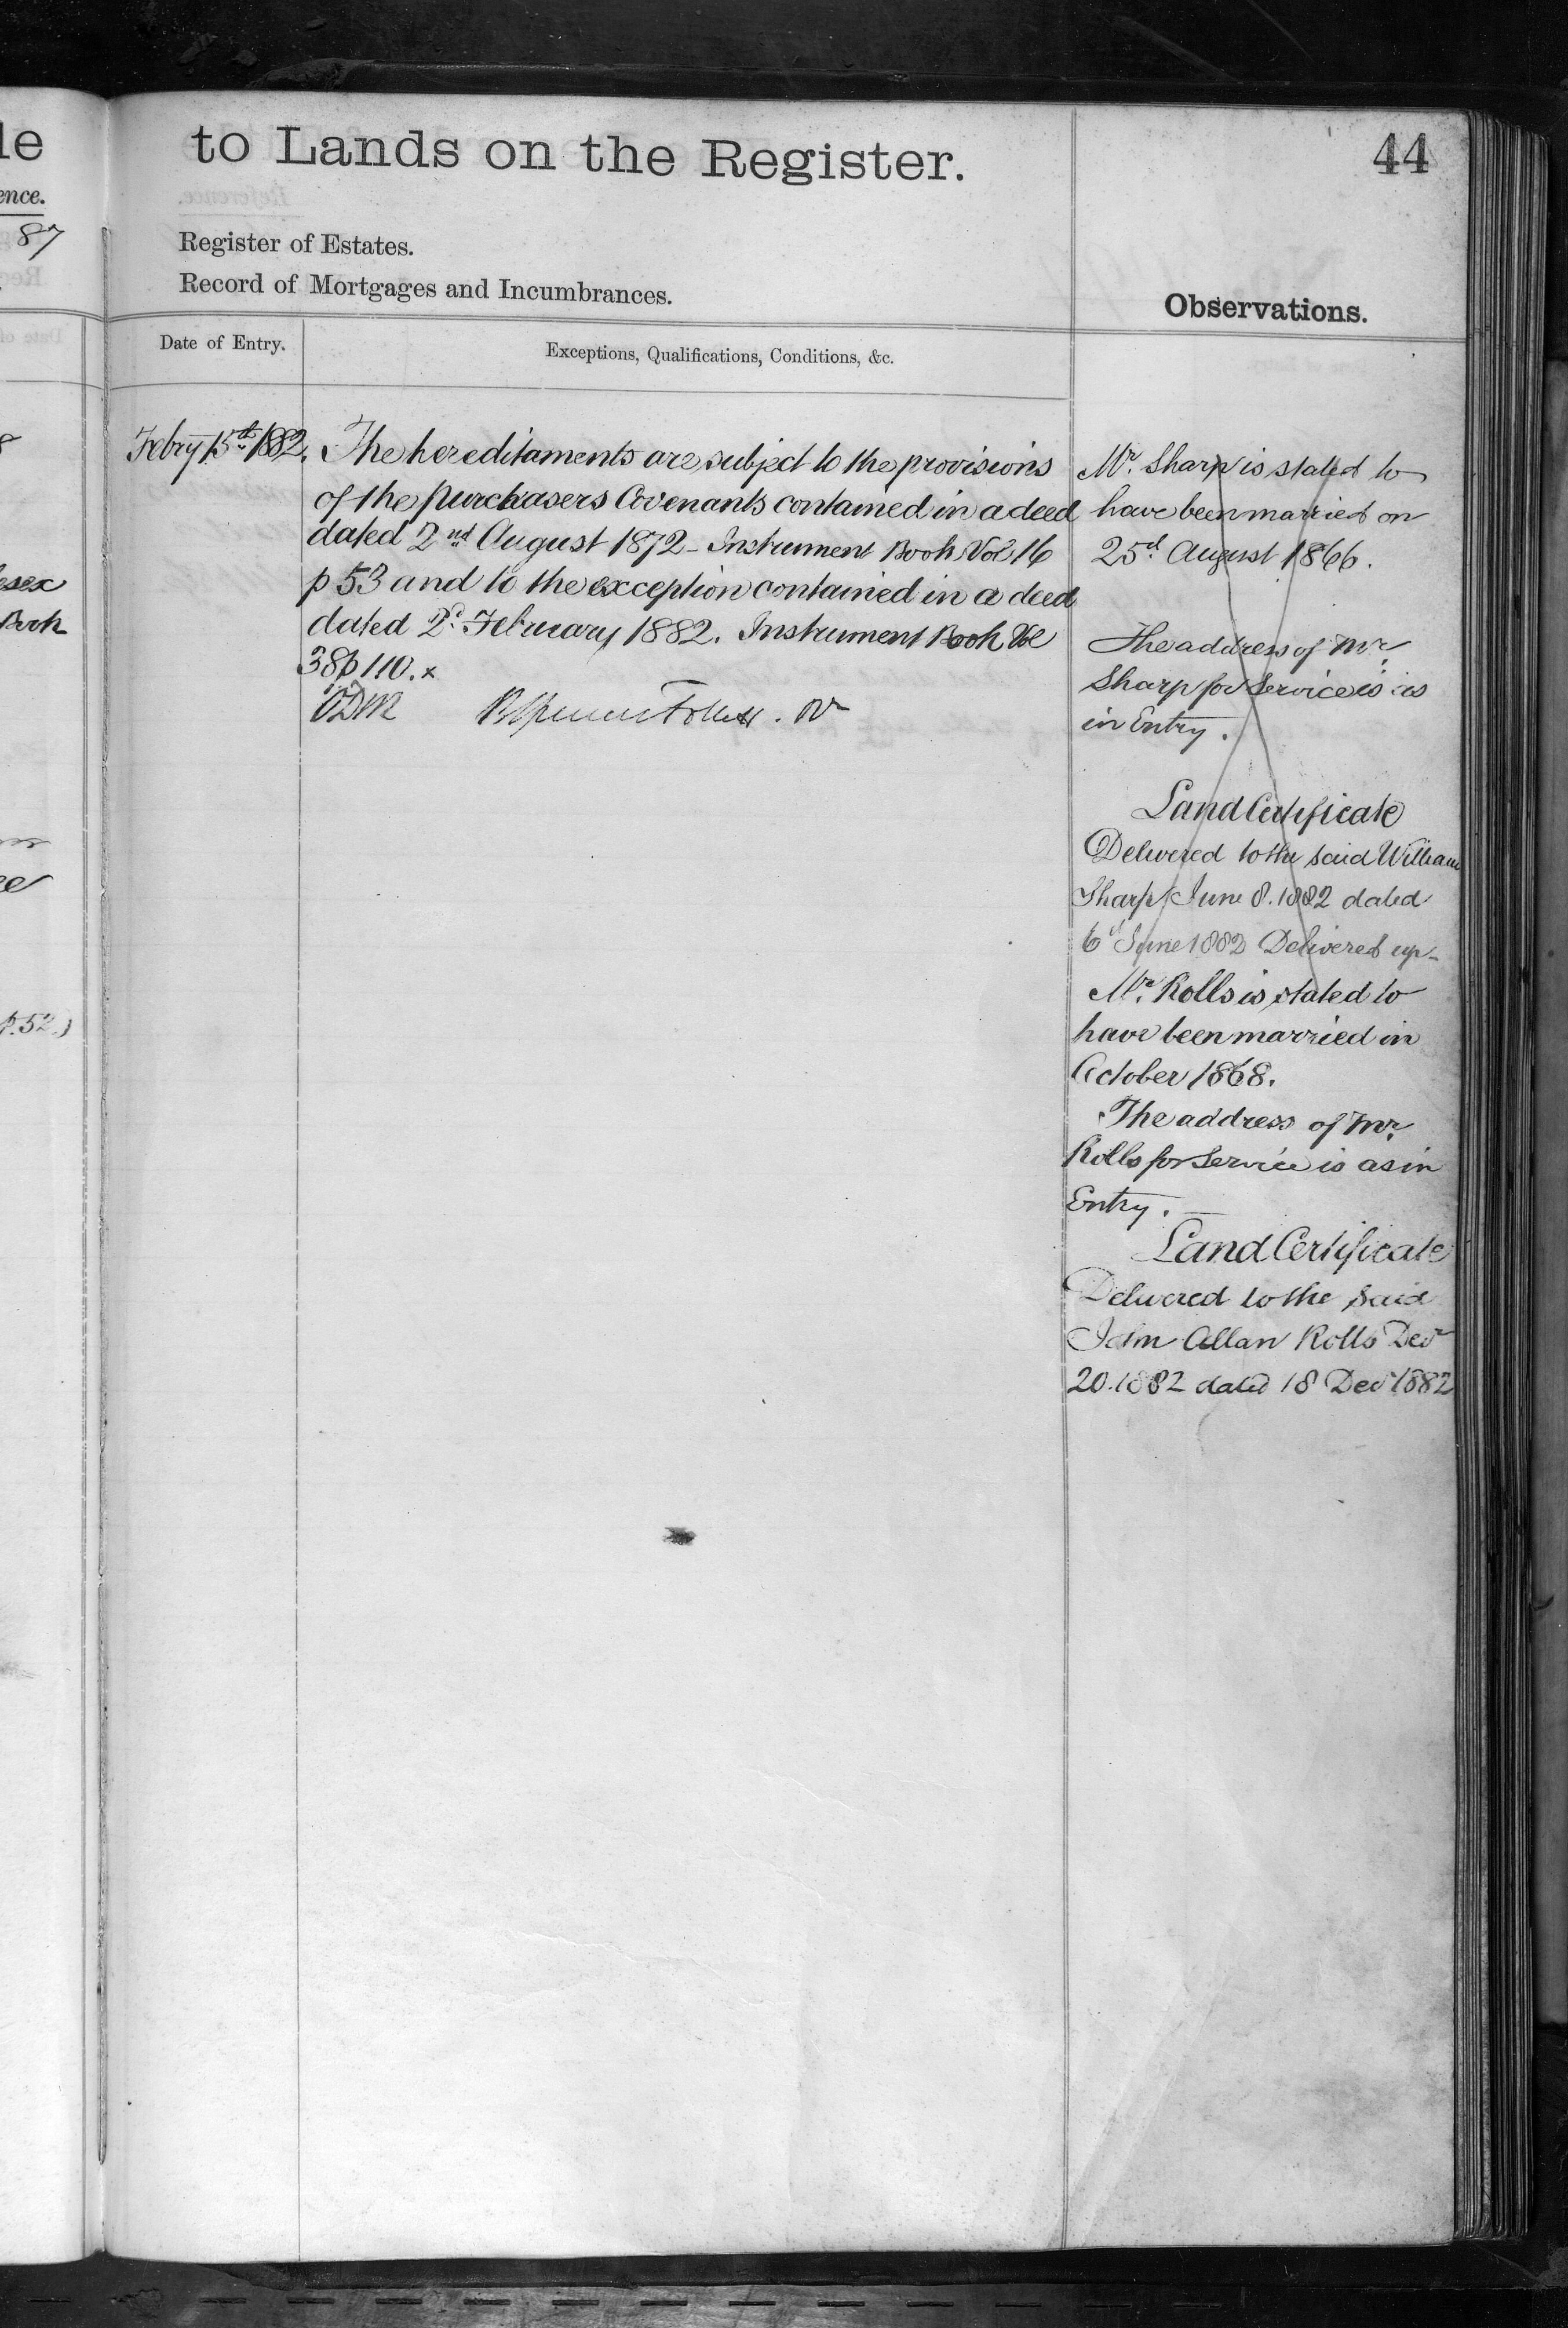 le
ence.
87
esex
Book
p.52.)
to Lands on the Register.
44
Register of Estates.
Record of Mortgages and Incumbrances.
Observations.
Date of Entry.
Exceptions, Qualifications, Conditions, &c.
Febry 15th 1882.
The hereditaments are subject to the provisions
of the purchasers Covenants contained in a deed
dated 2nd August 1872 - Instrument Book Vol 16
p 53 and to the exception contained in a deed
dated 2d February 1882. Instrument Book Vol
38 p 110. x
Mr. Sharp is stated to
have been married on
25th August 1866.
The address of Mr
Sharp for Service is as
in Entry.
Land Certificate
Delivered to the said William
Sharp June 8. 1882 dated
6th June 1882 Delivered up -
Mr. Rolls is stated to
have been married in
October 1868.
The address of Mr.
Rolls for Service is as in
Entry.
Land Certificate
Delivered to the said
John Allan Rolls Decr
20. 1882 dated 18 Decr 1882